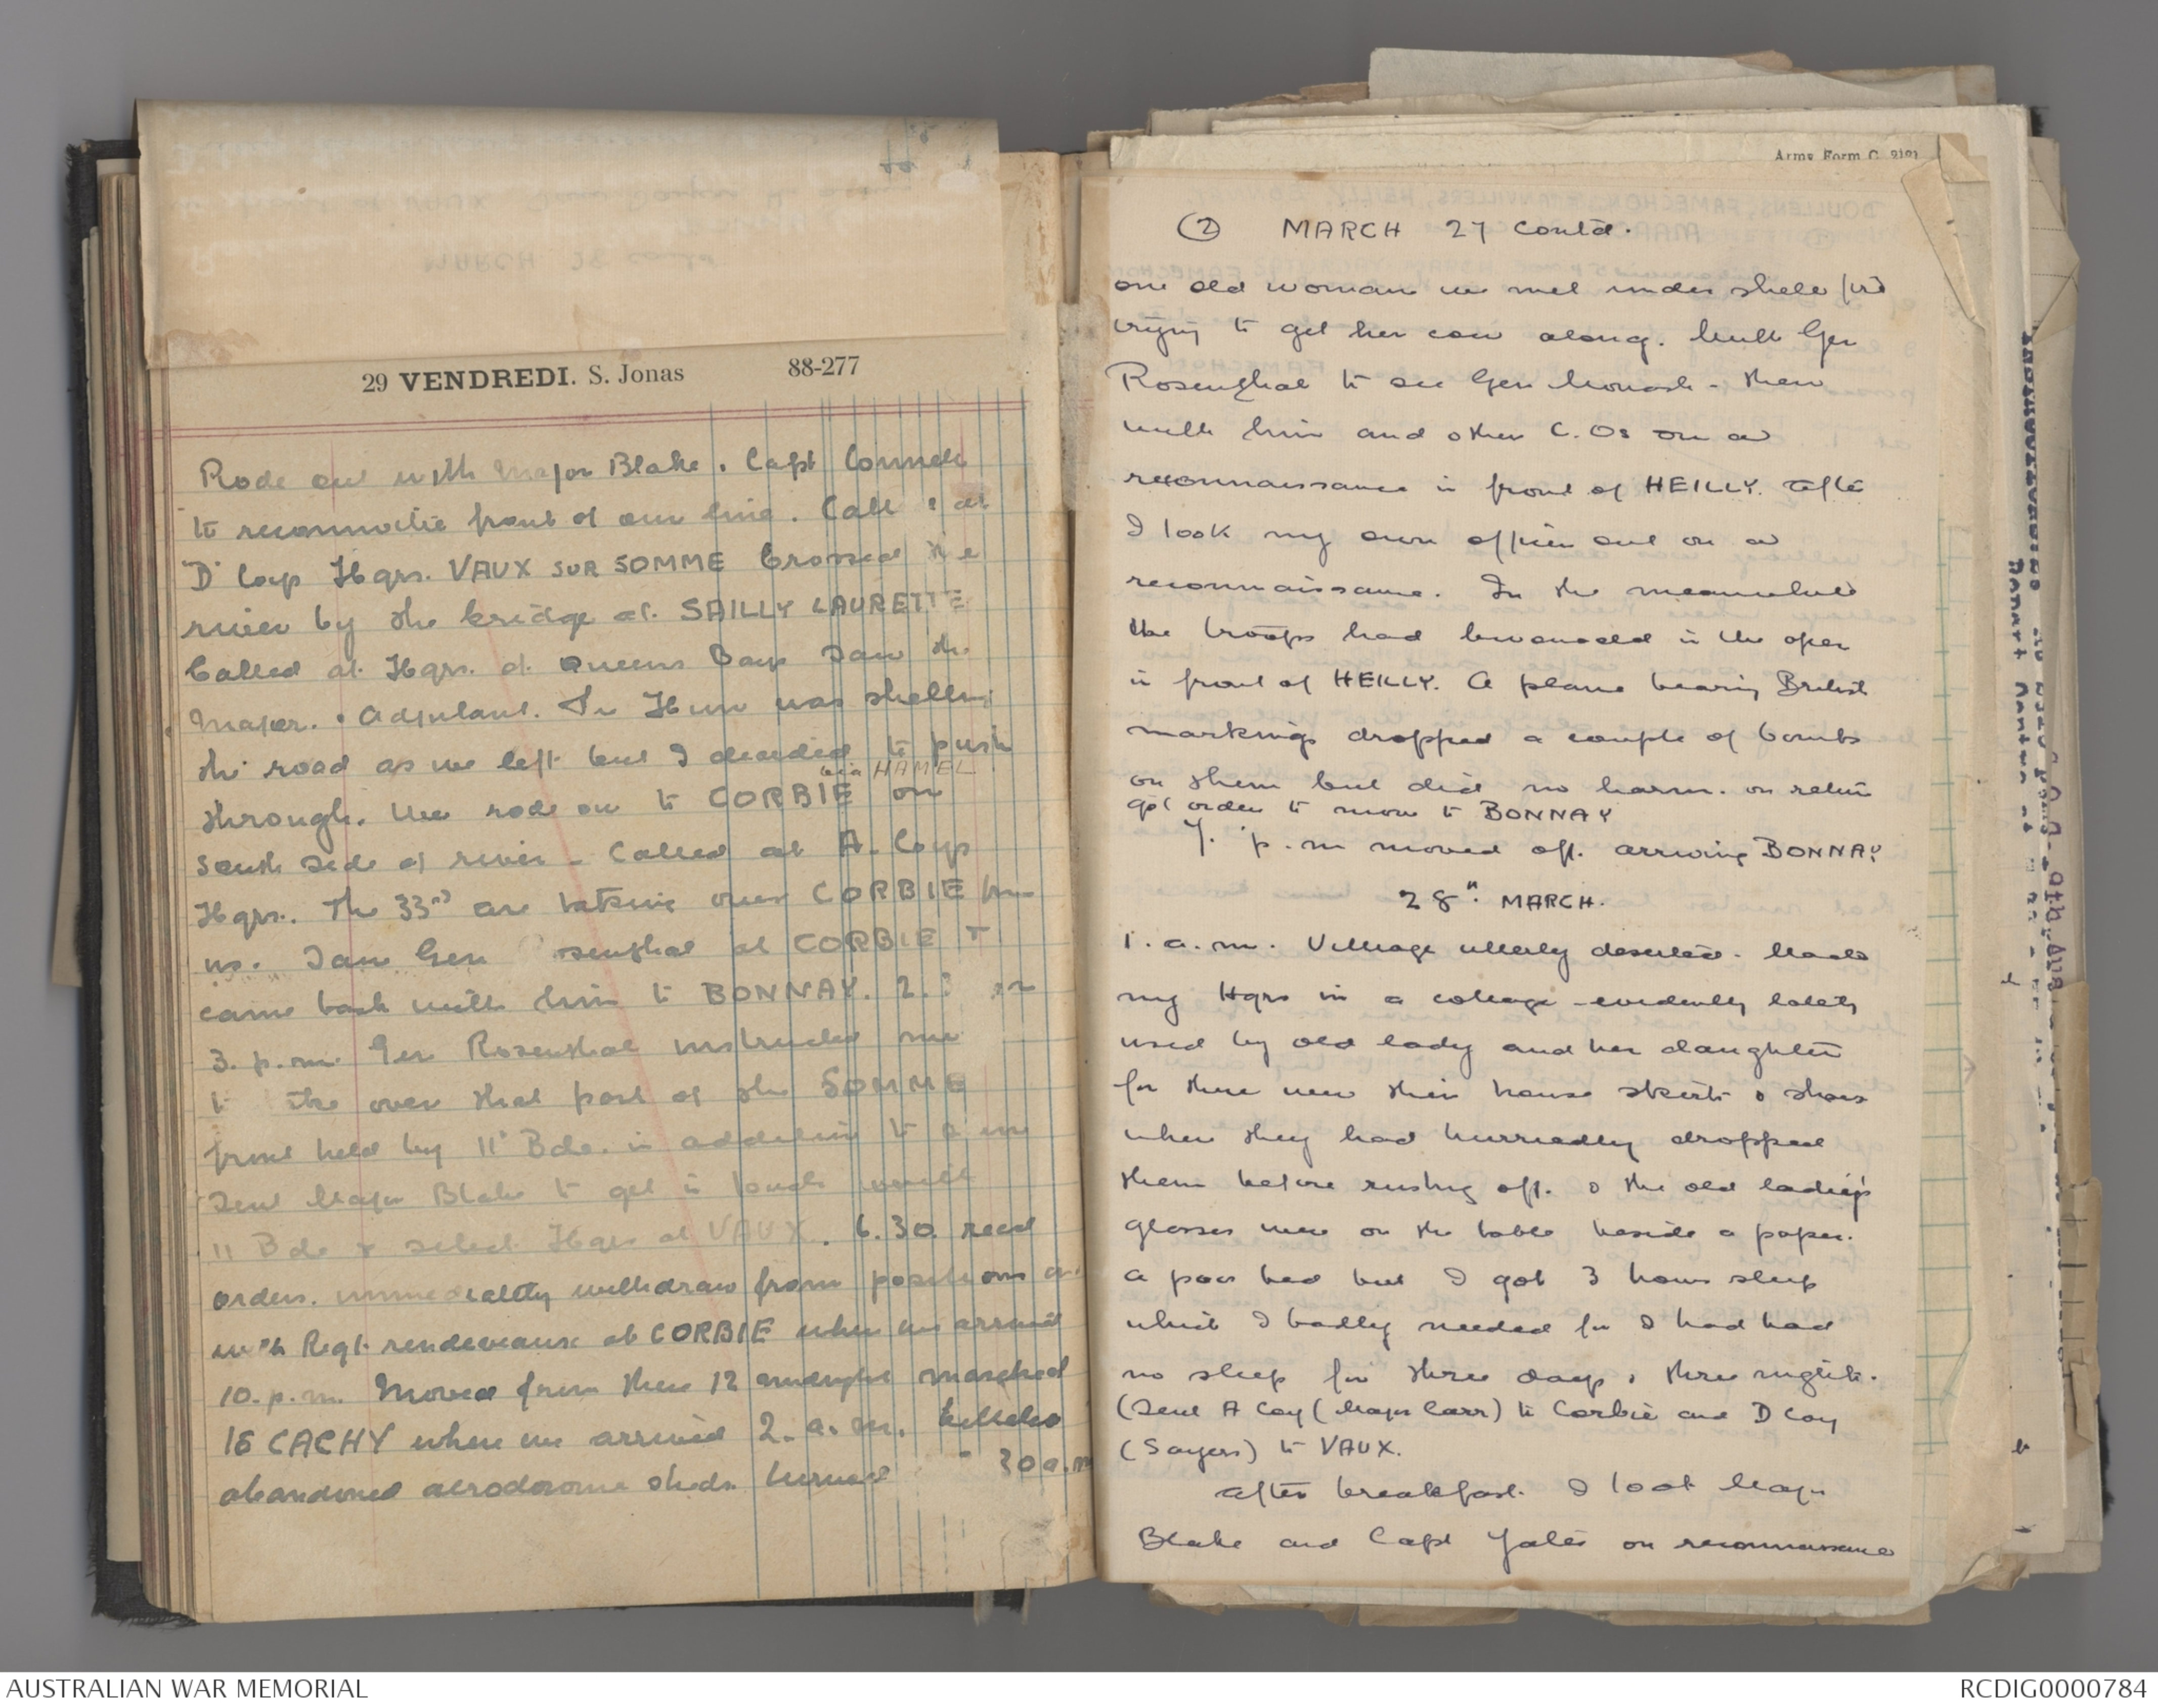 29 VENDREDI. S. Jonas 88-277
Rode out with Major Blake & Capt Connell
to reconnoitre front of our line. Call at
D' Coy Hqrs. VAUX SUR SOMME Crossed the
river by the bridge at SAILLY LAURETTE
Called at Hqrs. of Queens Bays Saw the
Major & Adjutant. The Hun was shelling
the road as we left but I decided to push
via HAMEL
through. We rode on to CORBIE on
south side of river - Called at A. Coys
Hqrs. The 33rd are taking over CORBIE from
us. Saw Gen Rosenthal at CORBIE &
came back with him to BONNAY. 2.
3. p.m. Gen Rosenthal instructed me
to take over that part of the SOMME
front held by 11th Bde. in addition to mine
Sent Major Blake to get in touch with
11 Bde & select Hqrs at VAUX. 6.30 recd
orders. immediatly withdraw from positions and
with Regt rendevaux at CORBIE where we arrived
10. p.m. Moved from there 12 midnight marched
to CACHY where we arrived 2. a.m. billeted
abandoned aerodrome sheds. turned 30 a.m
Army Form C. 2121
(2) MARCH 27 Contd.
one old woman we met under shell fire
trying to get her cow along. With Gen
Rosenthal to see Gen Monash - then
with him and other C.Os on a
reconnaissance in front of HEILLY. After
I took my own officers out on a
reconnaissance. In the meanwhile
the troops had bivouacked in the open
in front of HEILLY. A plane bearing British
markings dropped a couple of bombs
on them but did no harm. on return
got orders to move to BONNAY
7. p.m moved off. arriving BONNAY
28th MARCH.
1. a.m. Village utterly deserted. Made
my Hqrs in a cottage - evidently lately
used by old lady and her daughter
for there were their house skirts & shoes
where they had hurriedly dropped
them before rushing off. & the old ladies
glasses were on the table beside a paper.
A poor bed but I got 3 hours sleep
which I badly needed for I had had
no sleep for three days & three nights.
(Sent A Coy (Major Carr) to Corbie and D Coy
(Sayers) to VAUX.
After breakfast I took Major
Blake and Capt Yates on reconnaissance
AUSTRALIAN WAR MEMORIAL
RCDIG0000784